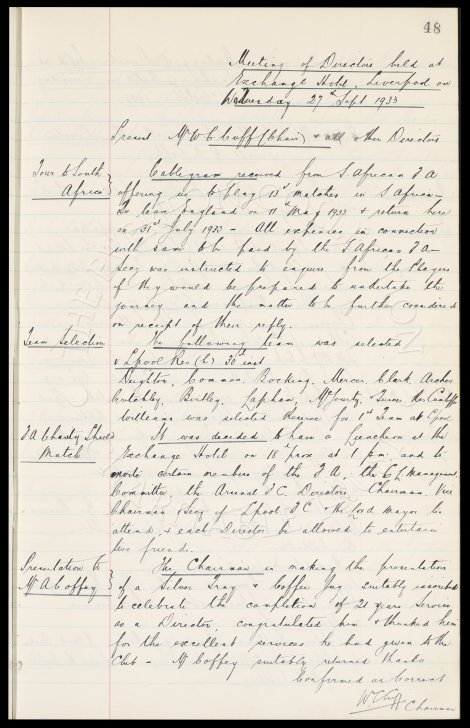 48
Meeting of Directors held at
Exchange Hotel, Liverpool on
Wednesday 27th Sept 1933
Present Mr W C Cuff (Chair) & all other Directors
Tour to South
Africa
Cablegram received from S African F A
offering us to play 13 matches in S Africa -
To leave England on 11th May 1933 & return here
on 31st July 1933 - All expenses in connection
with same to be paid by the S African F A -
Secy was instructed to enquire from the Players
if they would be prepared to undertake the
journey and the matter to be further considered
on receipt of their reply.
Team Selection
The following team was selected
v Lpool Res (L) 30th inst
Deighton, Common, Bocking, Mercer Clark Archer
Critchley, Bentley, Lapham, McGourty, Turner Res Cunliffe
Williams was selected Reserve for 1st Team at
F A Charity Shield
Match
It was decided to have a Luncheon at the
Exchange Hotel on 18 prox at 1 pm. and to
invite certain members of the F A, the C L Management
Committee, the Arsenal F C. Directors, Chairman Vice
Chairman & Secy of Lpool F C & the Lord Mayor to
attend, & each Director be allowed to entertain
two friends.
Presentation to
Mr A Coffey
The Chairman in making the presentation
of a Silver Tray & Coffee Jug suitably inscribed
to celebrate the completion of 21 years Service
as a Director, congratulated him & thanked him
for the excellent services he had given to the
Club - Mr Coffey suitably returned thanks
Confirmed as Correct
W C Cuff
Chairman